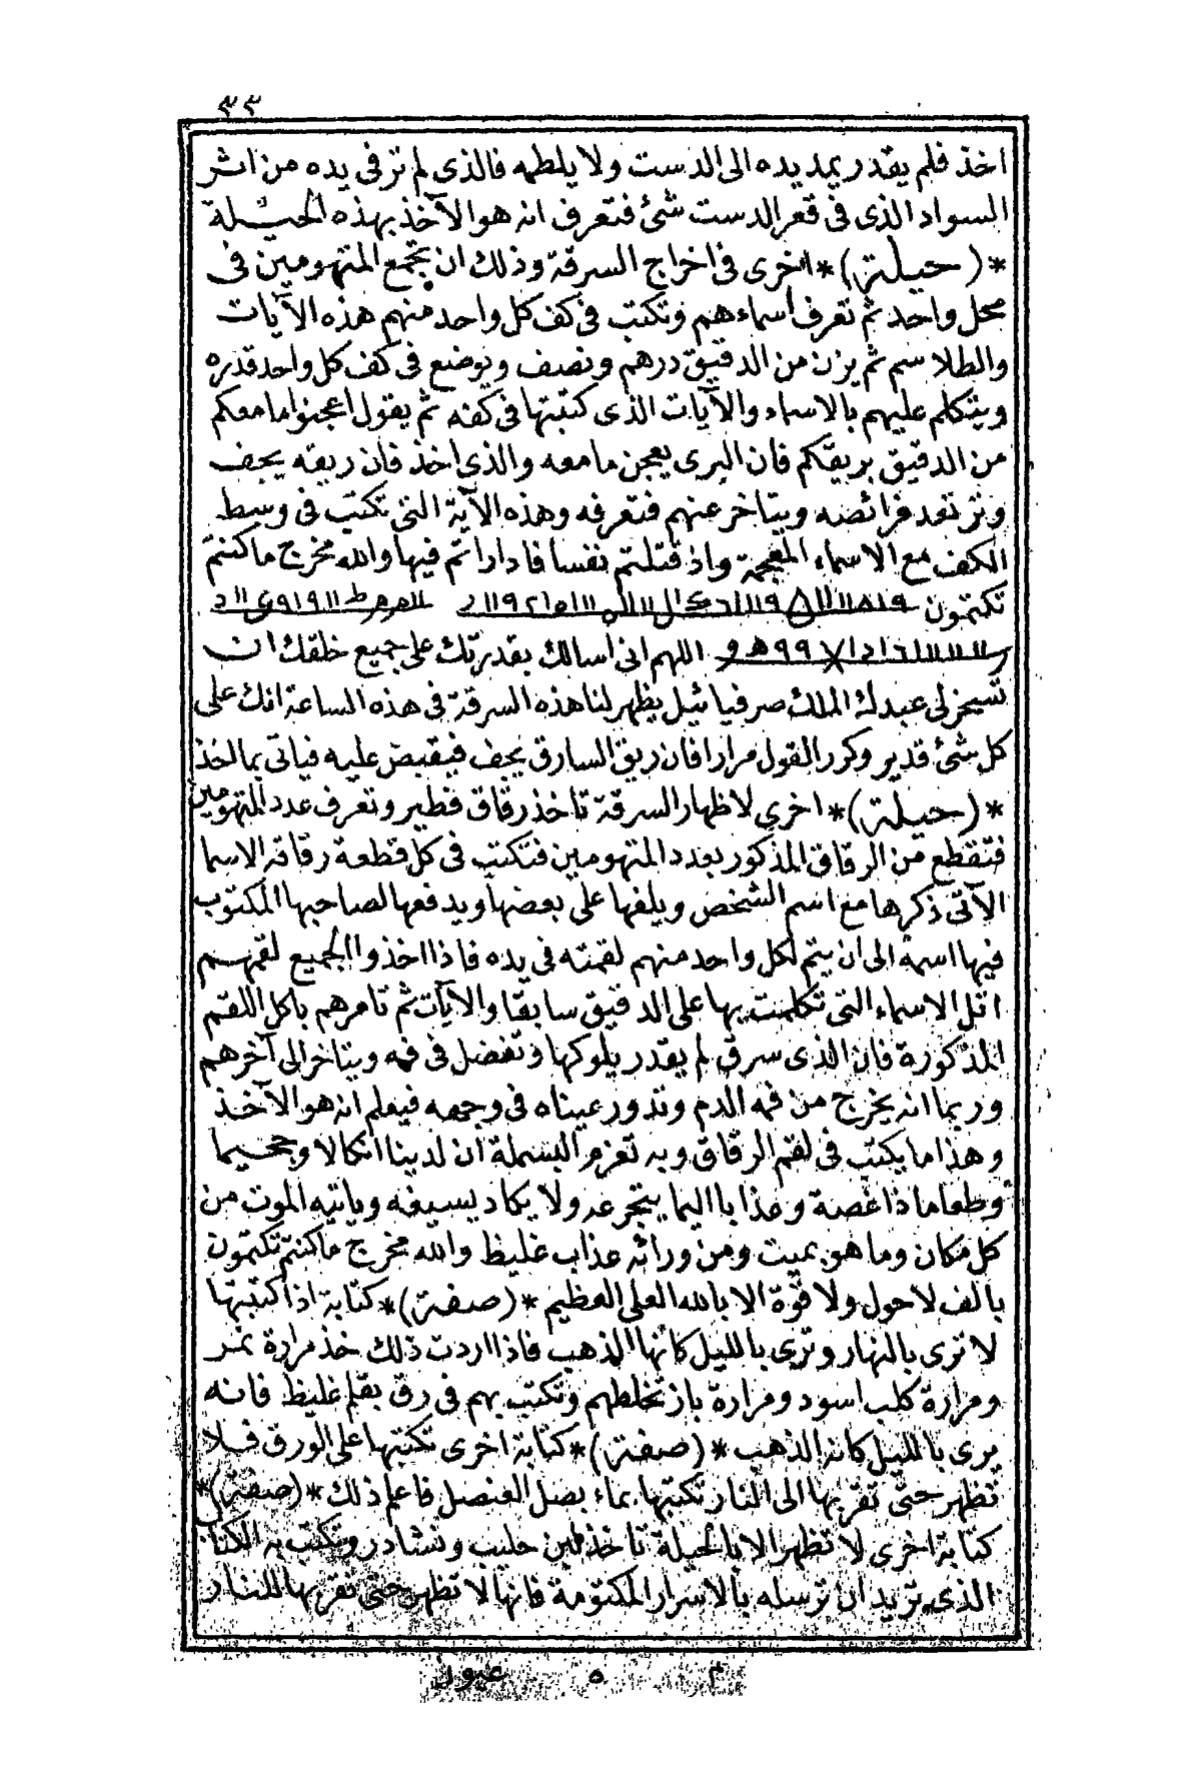 ٣٣
اخذ فلم يقدر يمد يده الى الدست ولا يلطمه فالذى لم تر فى يده من اثر
السواد الذى فى قعر الدست شئ فتعرف انه هو الآخذ بهذه الحيلة
*(حيلة)* اخرى فى اخراج السرقة وذلك ان تجمع المتهومين فى
محل واحد ثم تعرف اسماءهم وتكتب فى كف كل واحد منهم هذه الآيات
والطلاسم ثم يزن من الدقيق درهم ونصف ويوضع فى كف كل واحد قدره
ويتكلم عليهم بالاسماء والآيات الذى كتبتها فى كفه ثم يقول اعجنوا ما معكم
من الدقيق بريقكم فان البرى يعجن ما معه والذى اخذ فان ريقه يجف
وترتعد فرائصه ويتاخر عنهم فتعرفه وهذه الآية التى تكتب فى وسط
الكف مع الاسماء المعجمة واذ قتلتم نفسا فادارأتم فيها والله مخرج ما كنتم
تكتمون
اللهم انى اسالك بقدرتك على جميع خلقك ان
تسخر لى عبدك الملك صرفيائيل يظهر لنا هذه السرقة فى هذه الساعة انك على
كل شئ قدير وكرر القول مرارا فان ريق السارق يجف فيقبض عليه فياتى بما اخذ
*(حيلة)* اخرى لاظهار السرقة تاخذ رقاق فطير وتعرف عدد المتهومين
فتقطع من الرقاق المذكور بعدد المتهومين فتكتب فى كل قطعة رقاقة الاسما
الآتى ذكرها مع اسم الشخص ويلفها على بعضها ويدفعها لصاحبها المكتوب
فيها اسمه الى ان يتم لكل واحد منهم لقمته فى يده فاذا اخذوا الجميع لقمهم
اتل الاسماء التى تكلمت بها على الدقيق سابقا والآيات ثم تامرهم باكل اللقم
المذكورة فان الذى سرق لم يقدر يلوكها وتفضل فى فمه ويتاخر الى آخرهم
وربما انه يخرج من فمه الدم وتدور عيناه فى وجهه فيعلم انه هو الآخذ
وهذا ما يكتب فى لقم الرقاق وبه تعزم البسملة ان لدينا انكالا وجحيما
وطعاما ذا غصة وعذابا اليما يتجرعه ولا يكاد يسيغه وياتيه الموت من
كل مكان وما هو بميت ومن ورائه عذاب غليظ والله مخرج ما كنتم تكتمون
بالف لا حول ولا قوة الا بالله العلى العظيم *(صفة)* كتابة اذا كتبتها
لا ترى بالنهار وترى بالليل كانها الذهب فاذا اردت ذلك خذ مرارة نمر
ومرارة كلب اسود ومرارة باز تخلطهم وتكتب بهم فى رق بقلم غليظ فانه
يرى بالليل كانه الذهب *(صفة)* كتابة اخرى تكتبها على الورق فلا
تظهر حتى تقربها الى النار تكتبها بماء بصل العنصل فاعلم ذلك *(صفة)*
كتابة اخرى لا تظهر الا بالحيلة تاخذ لبن حليب ونشادر وتكتب به الكتاب
الذى تريد ان ترسله بالاسرار المكتومة فانها لا تظهر حتى تقربها للنار
م ٥ عيون